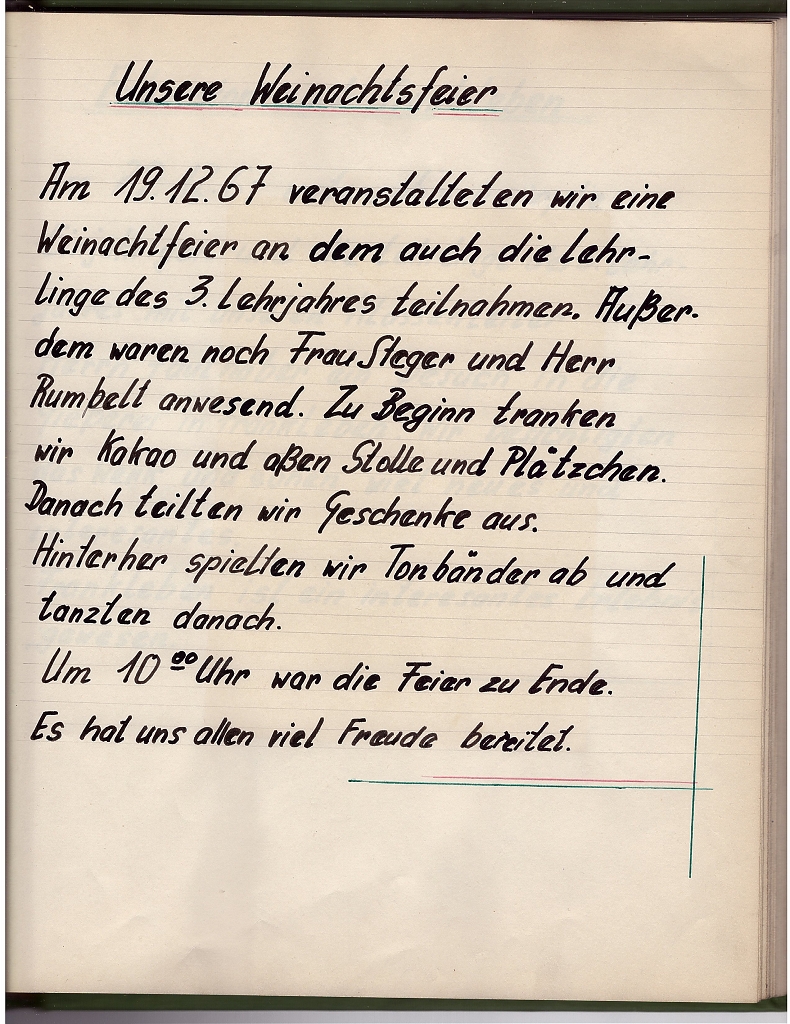 Unsere Weinachtsfeier
Am 19.12.67 veranstalteten wir eine
Weinachtfeier an dem auch die Lehr-
linge des 3. Lehrjahres teilnahmen. Außer-
dem waren noch Frau Steger und Herr
Rumpelt anwesend. Zu Beginn tranken
wir Kakao und aßen Stolle und Plätzchen.
Danach teilten wir Geschenke aus.
Hinterher spielten wir Tonbänder ab und
tanzten danach.
Um 10⁰⁰ Uhr war die Feier zu Ende.
Es hat uns allen viel Freude bereitet.